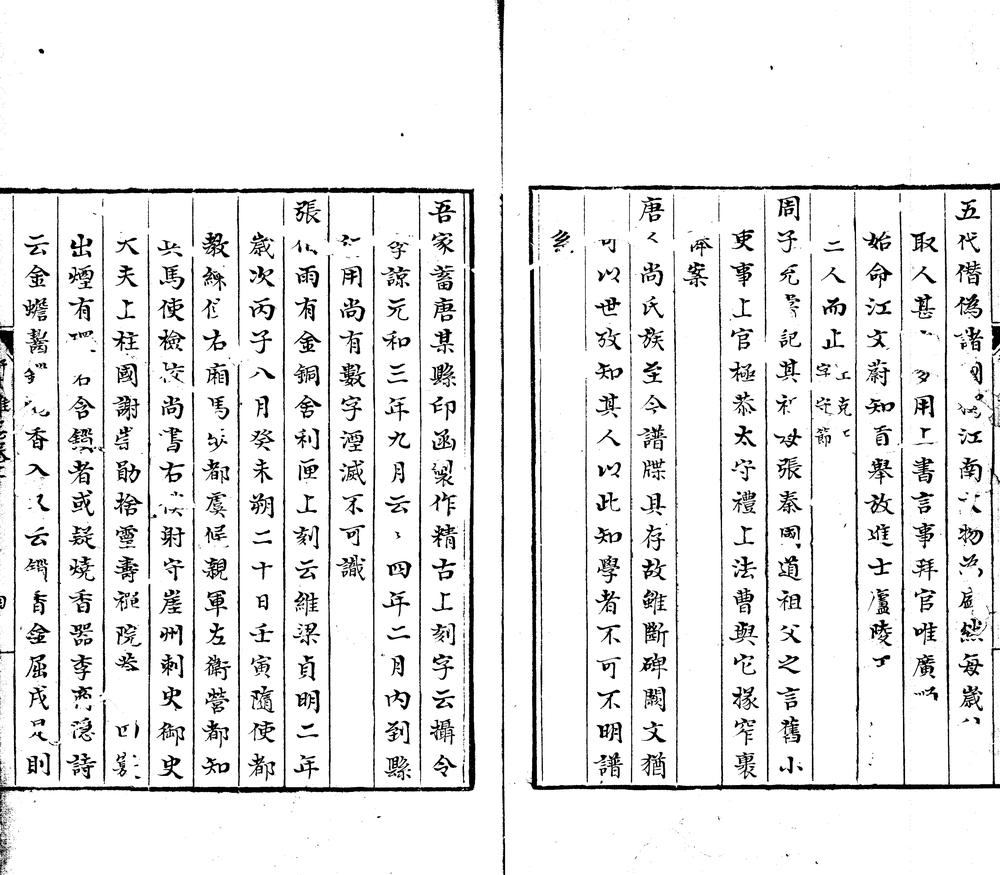 五代僭偽諸江南文物為盛然每歲
取人甚多用上書言事拜官唯廣順
始命江文蔚知貢舉放進士廬陵
二人而止
字守節
周子充記其祖母張秦國道祖父之言舊小
吏事上官極恭太守禮上法曹與它掾窄裹
唐人尚氏族至今譜牒具存故雖斷碑闕文猶
可以世攷知其人以此知學者不可不明譜
系
吾家蓄唐某縣印函製作精古上刻字云攝令
李諒元和三年九月云〻四年二月內到縣
用尚有數字湮滅不可識
張仙雨有金銅舍利匣上刻云維梁貞明二年
歲次丙子八月癸未朔二十日壬寅隨使都
教練使右廂馬步都虞候親軍左衛營都知
兵馬使檢挍尚書右僕射守崖州刺史御史
大夫上柱國謝崇勛捨靈壽禪院
出煙有石含鐶者或疑燒香器李商隱詩
云金蟾齧鎖香入又云鎖香金屈戍是則